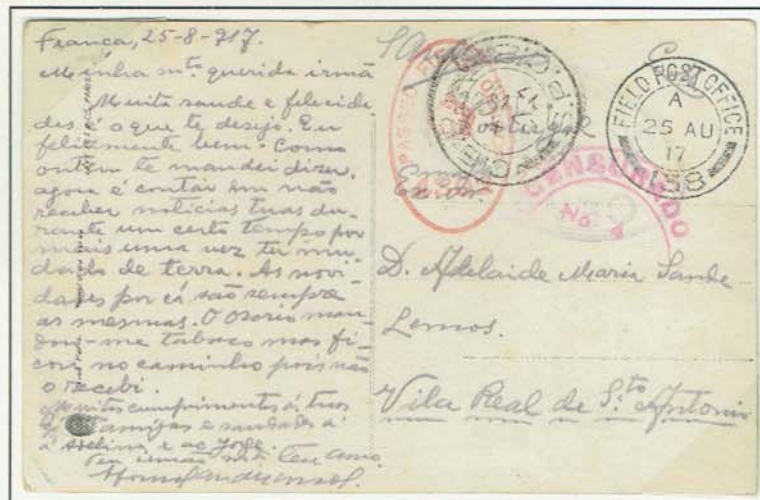 França, 25-8-917.
Minha mtº querida irmã
Muita saude e felecida
des é o que te desejo. Eu
felizmente bem. Como
ontem te mandei dizer,
agora é contar em não
receber noticias tuas du-
rante um certo tempo por
mais uma vez ter mu-
dado de terra. As novi-
dades por cá são sempre
as mesmas. O Osorio man-
dou-me tabaco mas fi-
cou no caminho pois não
o recebi.
Muitos cumprimentos ás tuas
amigas e saudades á
Avelina e ao Jorge.
Teu irmão mtº teu amº
PASSED
FIELD POST OFFICE
A
25 AU
17
158
CENSURADO
No 4
D. Adelaide Maria Sande
Lemos.
Vila Real de Stº Antonio